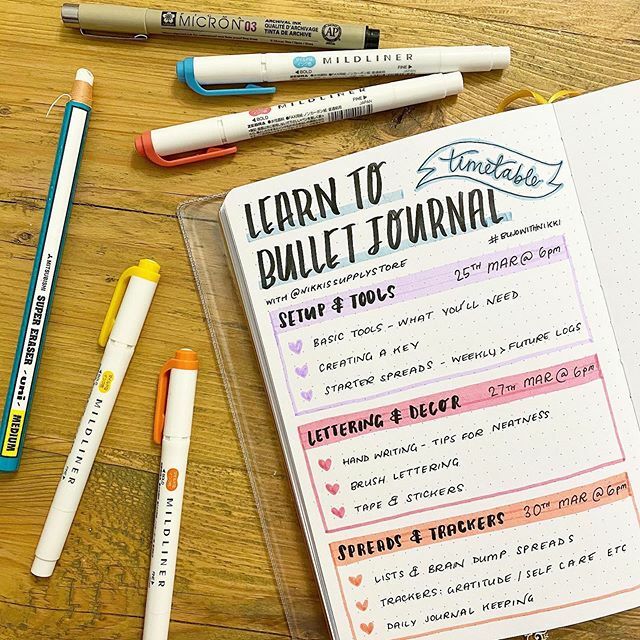 MICRON 03
ARCHIVAL INK
QUALITÉ D'ARCHIVAGE
TINTA DE ARCHIVO
AP
BOLD MILDLINER FINE
JAPAN
BOLD MILDLINER FINE
JAPAN
MITSUBISHI SUPER ERASER uni MEDIUM
MILDLINER FINE
MILDLINER FINE
LEARN TO
BULLET JOURNAL
timetable
#BUJOWITHNIKKI
WITH @NIKKISSUPPLYSTORE
SETUP & TOOLS 25TH MAR @ 6pm
BASIC TOOLS - WHAT YOU'LL NEED
CREATING A KEY
STARTER SPREADS - WEEKLY > FUTURE LOGS
LETTERING & DECOR 27TH MAR @ 6pm
HAND WRITING - TIPS FOR NEATNESS
BRUSH LETTERING
TAPE & STICKERS
SPREADS & TRACKERS 30TH MAR @ 6pm
LISTS & BRAIN DUMP SPREADS
TRACKERS: GRATITUDE / SELF CARE ETC
DAILY JOURNAL KEEPING